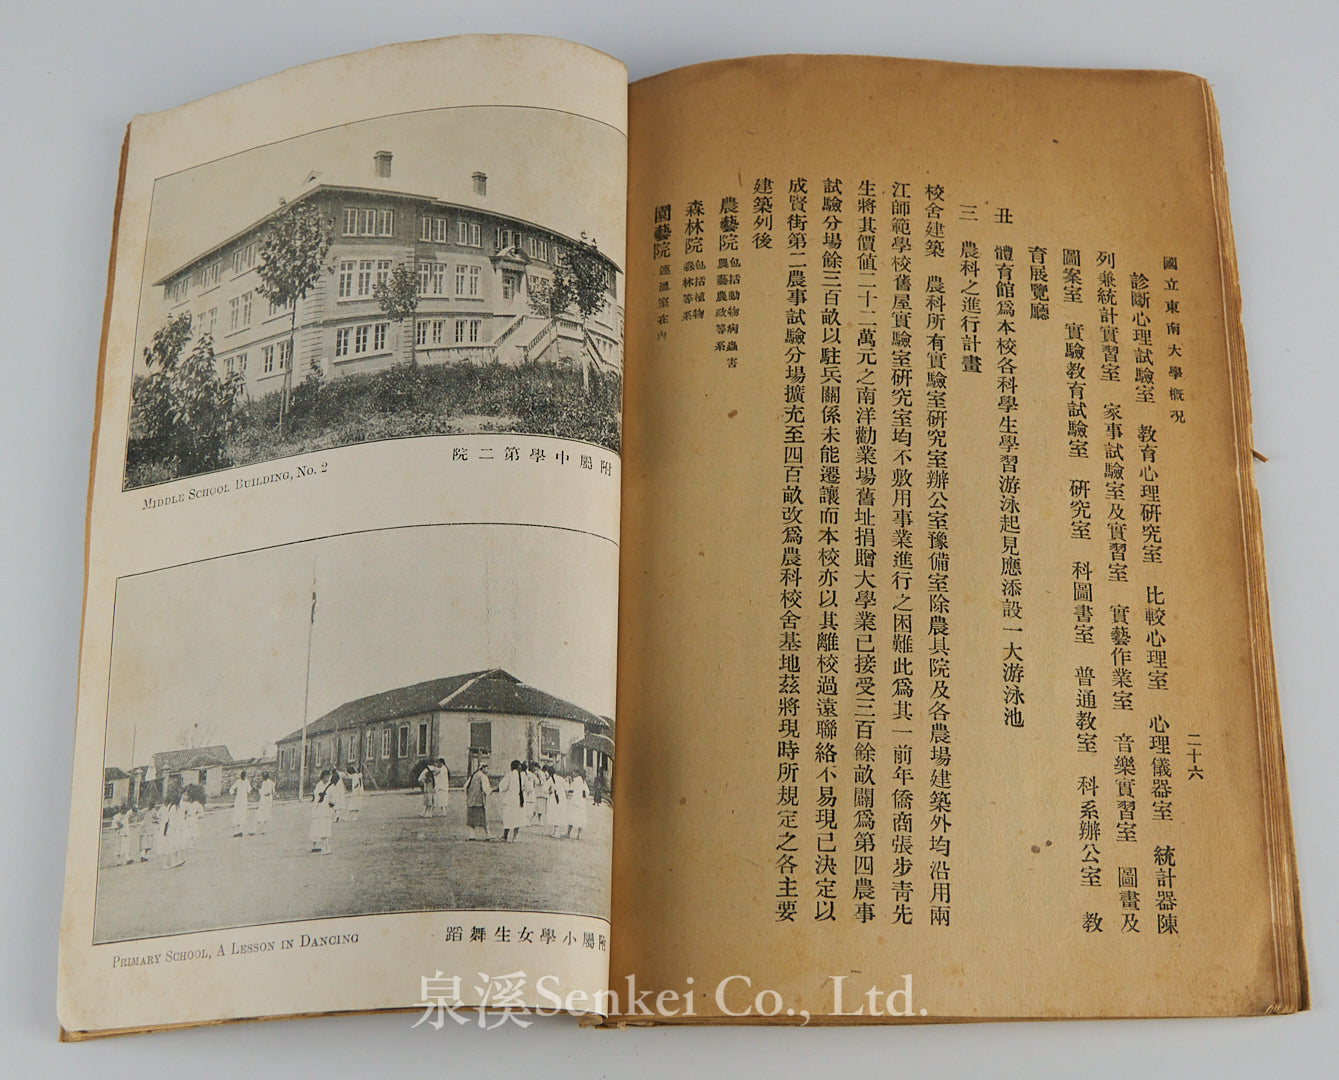 國立東南大學概況
二十六
診斷心理試驗室　教育心理研究室　比較心理室　心理儀器室　統計器陳
列兼統計實習室　家事試驗室及實習室　實藝作業室　音樂實習室　圖畫及
圖案室　實驗教育試驗室　研究室　科圖書室　普通教室　科系辦公室　教
育展覽廳
丑　體育館爲本校各科學生學習游泳起見應添設一大游泳池
三　農科之進行計畫
校舍建築　農科所有實驗室研究室辦公室豫備室除農具院及各農場建築外均沿用兩
江師範學校舊屋實驗室研究室均不敷用事業進行之困難此爲其一前年僑商張步青先
生將其價值二十二萬元之南洋勸業場舊址捐贈大學業已接受三百餘畝闢爲第四農事
試驗分場餘三百畝以駐兵關係未能遷讓而本校亦以其離校過遠聯絡不易現已決定以
成賢街第二農事試驗分場擴充至四百畝改爲農科校舍基地茲將現時所規定之各主要
建築列後
農藝院 包括動物病蟲害
農藝農政等系
森林院 包括植物
森林等系
園藝院 連溫室在內
附屬中學第二院
MIDDLE SCHOOL BUILDING, NO. 2
附屬小學女生舞蹈
PRIMARY SCHOOL, A LESSON IN DANCING
泉溪Senkei Co., Ltd.